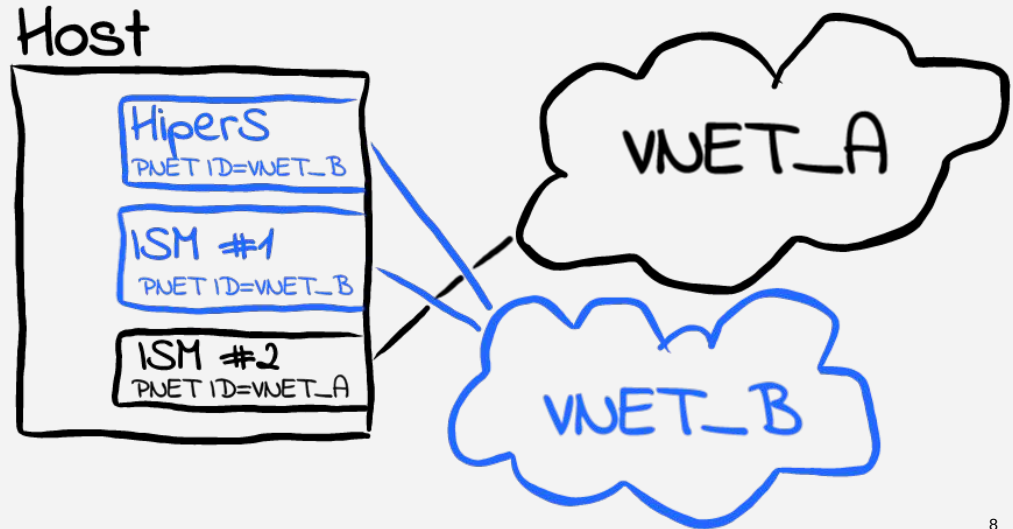 Host
HiperS
PNET ID=VNET_B
ISM #1
PNET ID=VNET_B
ISM #2
PNET ID=VNET_A
VNET_A
VNET_B
8